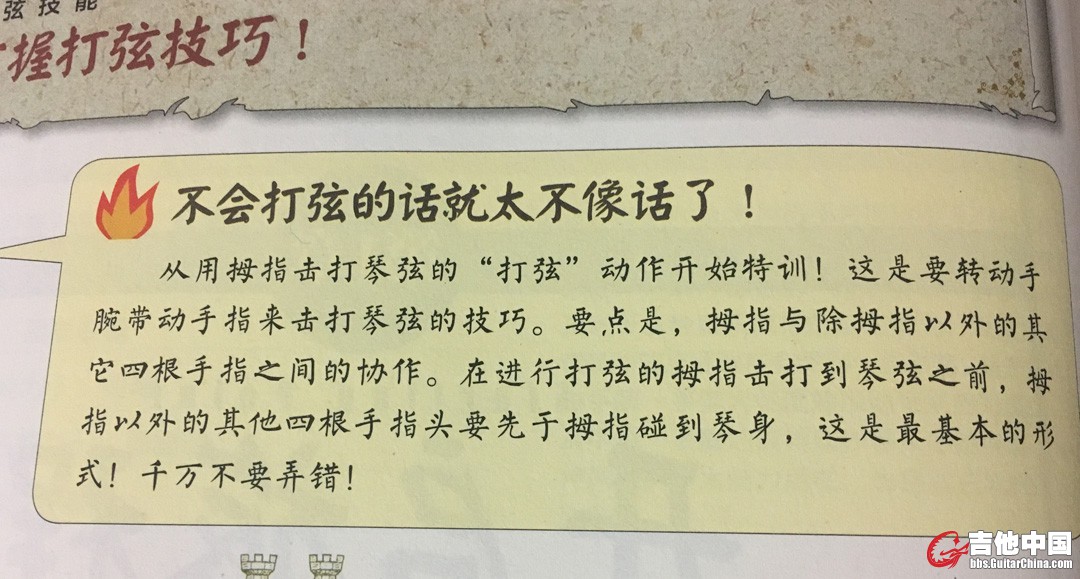 弦技能
握打弦技巧！
不会打弦的话就太不像话了！
从用拇指击打琴弦的“打弦”动作开始特训！这是要转动手
腕带动手指来击打琴弦的技巧。要点是，拇指与除拇指以外的其
它四根手指之间的协作。在进行打弦的拇指击打到琴弦之前，拇
指以外的其他四根手指头要先于拇指碰到琴身，这是最基本的形
式！千万不要弄错！
吉他中国
bbs.GuitarChina.com